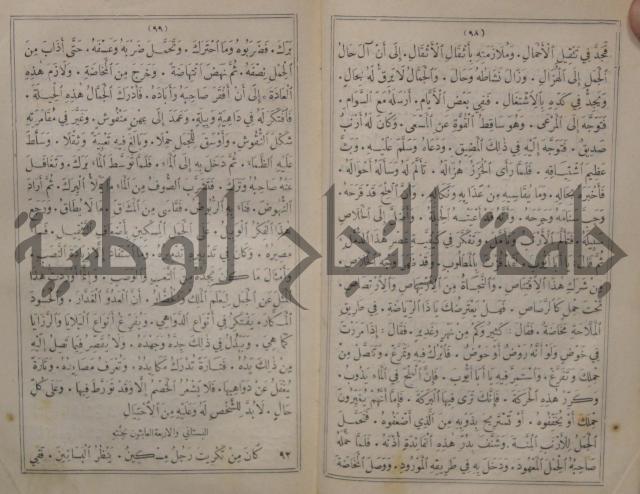 (٩٨)
فَجَدَّ فِي تَثْقِيلِ الْأَحْمَالِ . وَمُلَازَمَتِهِ بِأَثْقَالِ الْأَثْقَالِ . إِلَى أَنْ آلَ حَالُ
الْجَمَلِ إِلَى الْهُزَالِ . وَزَالَ نَشَاطُهُ وَحَالَ . وَالْجَمَّالُ لَا يَرِقُّ لَهُ بِحَالٍ .
وَيَجِدُّ فِي كَدِّهِ بِالْاِشْتِغَالِ . فَفِي بَعْضِ الْأَيَّامِ . أَرْسَلَهُ مَعَ السَّوَامِ .
فَتَوَجَّهَ إِلَى الْمَرْعَى . وَهُوَ سَاقِطُ الْقُوَّةِ عَنِ الْمَسْعَى . وَكَانَ لَهُ أَرْنَبٌ
صَدِيقٌ . فَتَوَجَّهَ إِلَيْهِ فِي ذٰلِكَ الْمَضِيقِ . وَدَعَاهُ وَسَلَّمَ عَلَيْهِ . وَبَثَّ
عَظِيمَ اشْتِيَاقِهِ . فَلَمَّا رَأَى الْخُزَزُ هُزَالَهُ . تَأَلَّمَ لَهُ وَسَأَلَهُ أَحْوَالَهُ .
فَأَخْبَرَهُ بِحَالِهِ . وَمَا يُقَاسِيهِ مِنْ عَذَابِهِ وَنَكَالِهِ . الْمِلْحَ قَدْ قَرَحَهُ .
وَجَبَّ سَنَامَهُ وَجَرَحَهُ . الْحِيلَةُ . إِلَى الْخَلَاصِ
فِي كَيْفِيَّةِ عَصْرِ هٰذَا
الْمَطْلُوبِ .
مِنْ شَرَكِ هٰذَا الْاِقْتِنَاصِ . وَالنَّجَاةُ مِنَ الْاِرْتِصَاصِ .
تَحْتَ حِمْلٍ كَالرَّصَاصِ . فَهَلْ يَعْتَرِضُكَ يَا ذَا الرِّيَاضَةِ . فِي طَرِيقِ
الْمَلَّاحَةِ مَخَاضَةٌ . فَقَالَ : كَثِيرٌ وَكَمْ مِنْ نَهْرٍ وَغَدِيرٍ . فَقَالَ : إِذَا مَرَرْتَ
فِي خَوْضٍ وَلَوْ أَنَّهُ رَوْضٌ أَوْ حَوْضٌ . فَابْرُكْ فِيهِ وَتَمَرَّغْ . وَتَنَصَّلْ مِنْ
حِمْلِكَ وَتَفَرَّغْ . وَاسْتَمِرَّ فِيهِ يَا أَبَا أَيُّوبَ . فَإِنَّ الْمِلْحَ فِي الْمَاءِ يَذُوبُ .
وَكَرِّرْ هٰذِهِ الْحَرَكَةَ . فَإِنَّكَ تَرَى فِيهَا الْبَرَكَةَ . فَإِمَّا أَنَّهُمْ يُغَيِّرُونَ
حِمْلَكَ أَوْ يُخَفِّفُوهُ . أَوْ تَسْتَرِيحُ بِذَوْبِهِ مِنَ الَّذِي أَضْعَفُوهُ . فَتَحَمَّلَ
الْجَمَلُ لِلْأَرْنَبِ الْمِنَّةَ . وَشَنَّفَ بِدُرِّ هٰذِهِ الْفَائِدَةِ أُذُنَهُ . فَلَمَّا حَمَّلَهُ
صَاحِبُهُ الْحِمْلَ الْمَعْهُودَ . وَدَخَلَ بِهِ فِي طَرِيقِهِ الْمَوْرُودِ . وَوَصَلَ الْمَخَاضَةَ
(٩٩)
بَرَكَ . فَضَرَبُوهُ وَمَا احْتَرَكَ . وَتَحَمَّلَ ضَرْبَهُ وَعَسْفَهُ . حَتَّى أَذَابَ مِنَ
الْحِمْلِ نِصْفَهُ . ثُمَّ نَهَضَ انْتِهَاضَةً . وَخَرَجَ مِنَ الْمَخَاضَةِ . وَلَازَمَ هٰذِهِ
الْعَادَةَ . إِلَى أَنْ أَفْقَرَ صَاحِبَهُ وَأَبَادَهُ . فَأَدْرَكَ الْجَمَّالُ هٰذِهِ الْحِيلَةَ .
فَافْتَكَرَ لَهُ فِي دَاهِيَةٍ وَبِيلَةٍ . وَعَمَدَ إِلَى عِهْنٍ مَنْفُوشٍ . وَغَيَّرَ فِي مُقَامَرَتِهِ
شَكْلَ النُّقُوشِ . وَأَوْسَقَ لِلْجَمَلِ حِمْلًا . وَبَالَغَ فِيهِ تَعْبِيَةً وَثِقْلًا . وَسَلَّطَ
عَلَيْهِ الظَّمَا . ثُمَّ دَخَلَ بِهِ إِلَى الْمَاءِ . فَلَمَّا تَوَسَّطَ الْمَاءَ بَرَكَ . وَتَغَافَلَ
عَنْهُ صَاحِبُهُ وَتَرَكَ . فَتَشَرَّبَ الصُّوفُ مِنَ الْمَاءِ الْبِرَكَ . ثُمَّ أَرَادَ
النُّهُوضَ . الرُّبُوضُ . فَقَاسَى مِنَ الْمَشَاقِّ مَا لَا يُطَاقُ . وَرَجَعَ
هٰذَا الْفِكْرُ الْوَبِيلُ . عَلَى الْجَمَلِ الْمِسْكِينِ
مَصِيرُهُ . وَكَانَ فِي تَدْبِيرِهِ
مِنَ التَّعَبِ
الْمَثَلَ عَنِ الْجَمَلِ لِيَعْلَمَ الْمَلِكُ . أَنَّ الْعَدُوَّ الْغَدَّارَ . وَالْحَسُودَ
الْمَكَّارَ . يَفْتَكِرُ فِي أَنْوَاعِ الدَّوَاهِي . وَيُفَرِّغُ أَنْوَاعَ الْبَلَايَا وَالرَّزَايَا
كَمَا هِيَ . وَيَبْذُلُ فِي ذٰلِكَ جِدَّهُ وَجُهْدَهُ . وَلَا يُقَصِّرُ فِيمَا تَصِلُ إِلَيْهِ
مِنْ ذٰلِكَ يَدُهُ . فَتَارَةً تُدْرَكُ مَكَايِدُهُ . وَتُعْرَفُ مَصَايِدُهُ . وَتَارَةً
يُغْفَلُ عَنْ دَوَاهِيهَا . فَلَا يَشْعُرُ الْخَصْمُ إِلَّا وَقَدْ تَوَرَّطَ فِيهَا . وَعَلَى كُلِّ
حَالٍ . لَا بُدَّ لِلشَّخْصِ لَهُ وَعَلَيْهِ مِنَ الْاِحْتِيَالِ
البستاني والاربعة العابثون بجنته
٩٢ كَانَ مِنْ تَكْرِيتَ رَجُلٌ مِسْكِينٌ . يَنْظُرُ الْبَسَاتِينَ . فَفِي
جامعة النجاح الوطنية